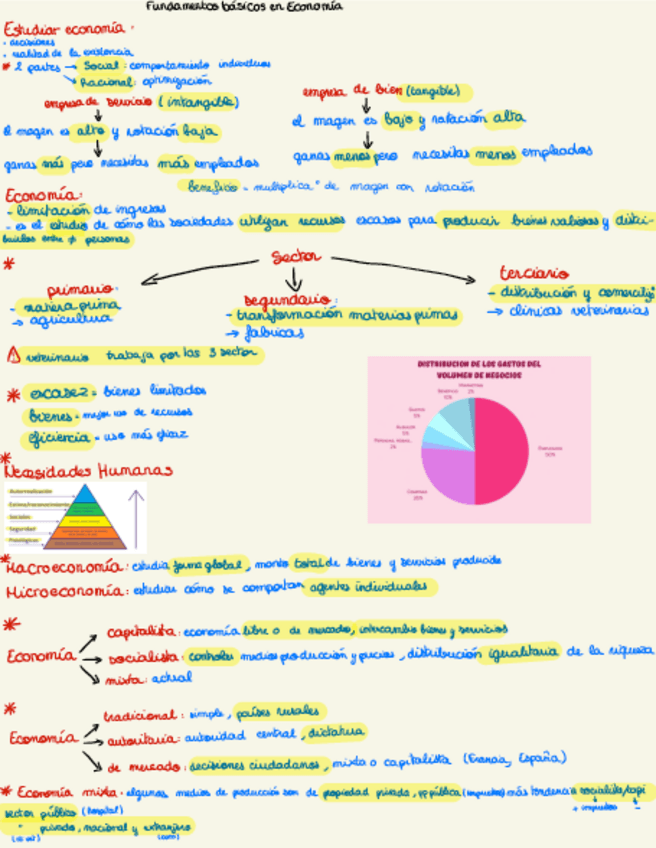 Fundamentos básicos en Economía
Estudiar economía:
- decisiones
- realidad de la existencia
* 2 partes → Social: comportamiento individuos
↳ Racional: optimización
empresa de servicio (intangible)
el magen es alto y rotación baja
ganas más pero necesitas más empleados
empresa de bien (tangible)
el magen es bajo y rotación alta
ganas menos pero necesitas menos empleados
beneficio = multiplica° de magen con rotación
Economía:
- limitación de ingresos
- es el estudio de cómo las sociedades utilizan recursos escasos para producir bienes valiosos y distri-
buirlos entre ≠ personas
* Sector
primario:
- materia prima
→ agricultura
segundario:
- transformación materias primas
→ fabricas
terciario
- distribución y
→ clínicas veterinarias
⚠ veterinario trabaja por los 3 sector
* escasez = bienes limitados
bienes = mejor uso de recursos
eficiencia = uso más eficaz
DISTRIBUCION DE LOS GASTOS DEL
VOLUMEN DE NEGOCIOS
* Necesidades Humanas
Autorrealización
Estima/reconocimiento
Sociales
Seguridad
Fisiológicas
* Macroeconomía: estudia forma global, monto total de bienes y servicios producido
Microeconomía: estudiar cómo se comportan agentes individuales
* Economía
capitalista: economía libre o de mercado, intercambio bienes y servicios
socialista: controles medios producción y precios, distribución igualitaria de la riqueza
mixta: actual
* Economía
tradicional: simple, países rurales
autoritaria: autoridad central, dictatura
de mercado: decisiones ciudadanos, mixta o capitalista (Francia, España)
* Economía mixta: algunos medios de producción son de propiedad privada, pp pública (impuestos) más tendencia socialista/capi
+ impuestos -
sector público (hospital)
" privado, nacional y extranjero